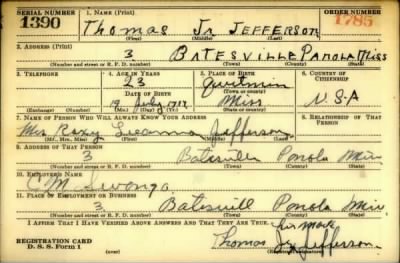 SERIAL NUMBER 1. NAME (Print) ORDER NUMBER
1390 Thomas Jr JEFFERSON 1785
(First) (Middle) (Last)
2. ADDRESS (Print)
3 BATESVILLE PANOLA MISS
(Number and street or R. F. D. number) (Town) (County) (State)
3. TELEPHONE 4. AGE IN YEARS 5. PLACE OF BIRTH 6. COUNTRY OF CITIZENSHIP
23 Quitman
DATE OF BIRTH (Town or county)
19 July 1917 Miss U.S.A
(Exchange) (Number) (Mo.) (Day) (Yr.) (State or country)
7. NAME OF PERSON WHO WILL ALWAYS KNOW YOUR ADDRESS 8. RELATIONSHIP OF THAT PERSON
Mrs Roxy Jefferson
(Mr., Mrs., Miss) (First) (Middle) (Last)
9. ADDRESS OF THAT PERSON
3 Batesville Panola Miss
(Number and street or R. F. D. number) (Town) (County) (State)
10. EMPLOYER'S NAME
C M
11. PLACE OF EMPLOYMENT OR BUSINESS
3 Batesvill Panola Miss
(Number and street or R. F. D. number) (Town) (County) (State)
I AFFIRM THAT I HAVE VERIFIED ABOVE ANSWERS AND THAT THEY ARE TRUE.
his mark
REGISTRATION CARD Thomas Jr Jefferson
D. S. S. Form 1